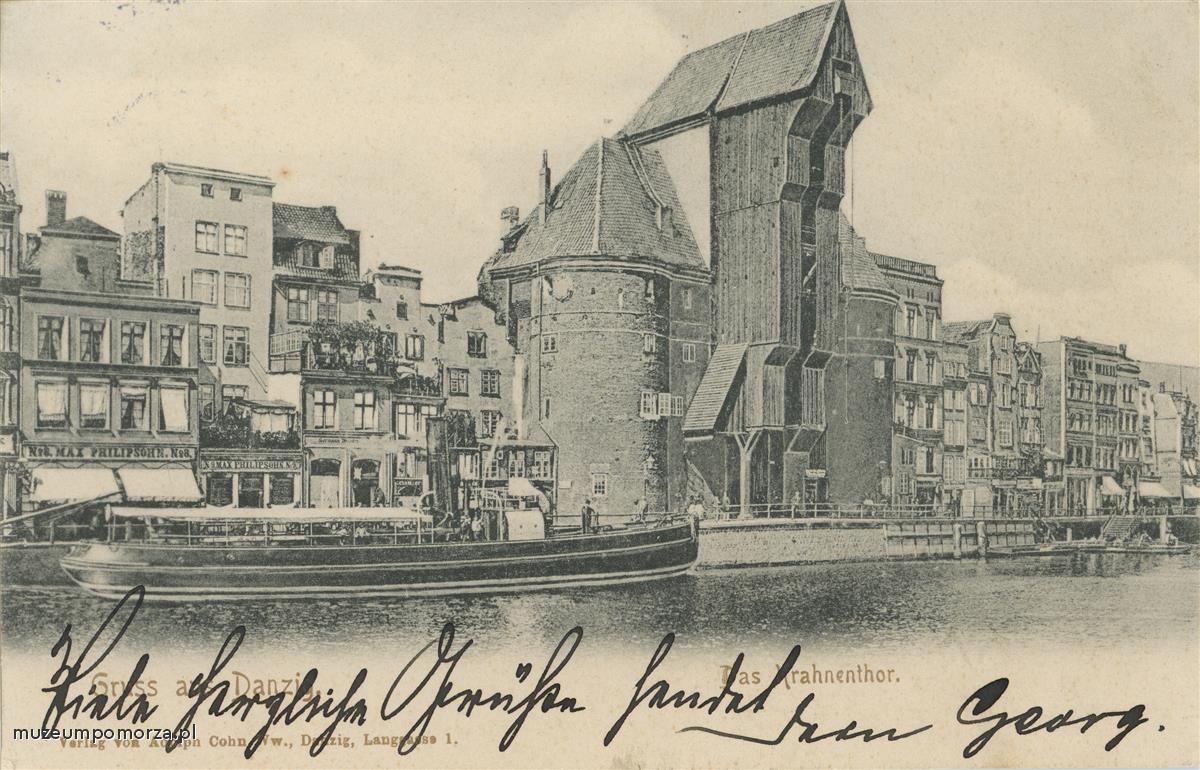 No 8. MAX PHILIPSOHN. No 8.
MAX PHILIPSOHN
Gruss aus Danzig.
Das Krahnenthor.
Viele herzliche Grüße sendet
Dein Georg.
Verlag von Adolph Cohn Ww., Danzig, Langgasse 1.
muzeumpomorza.pl